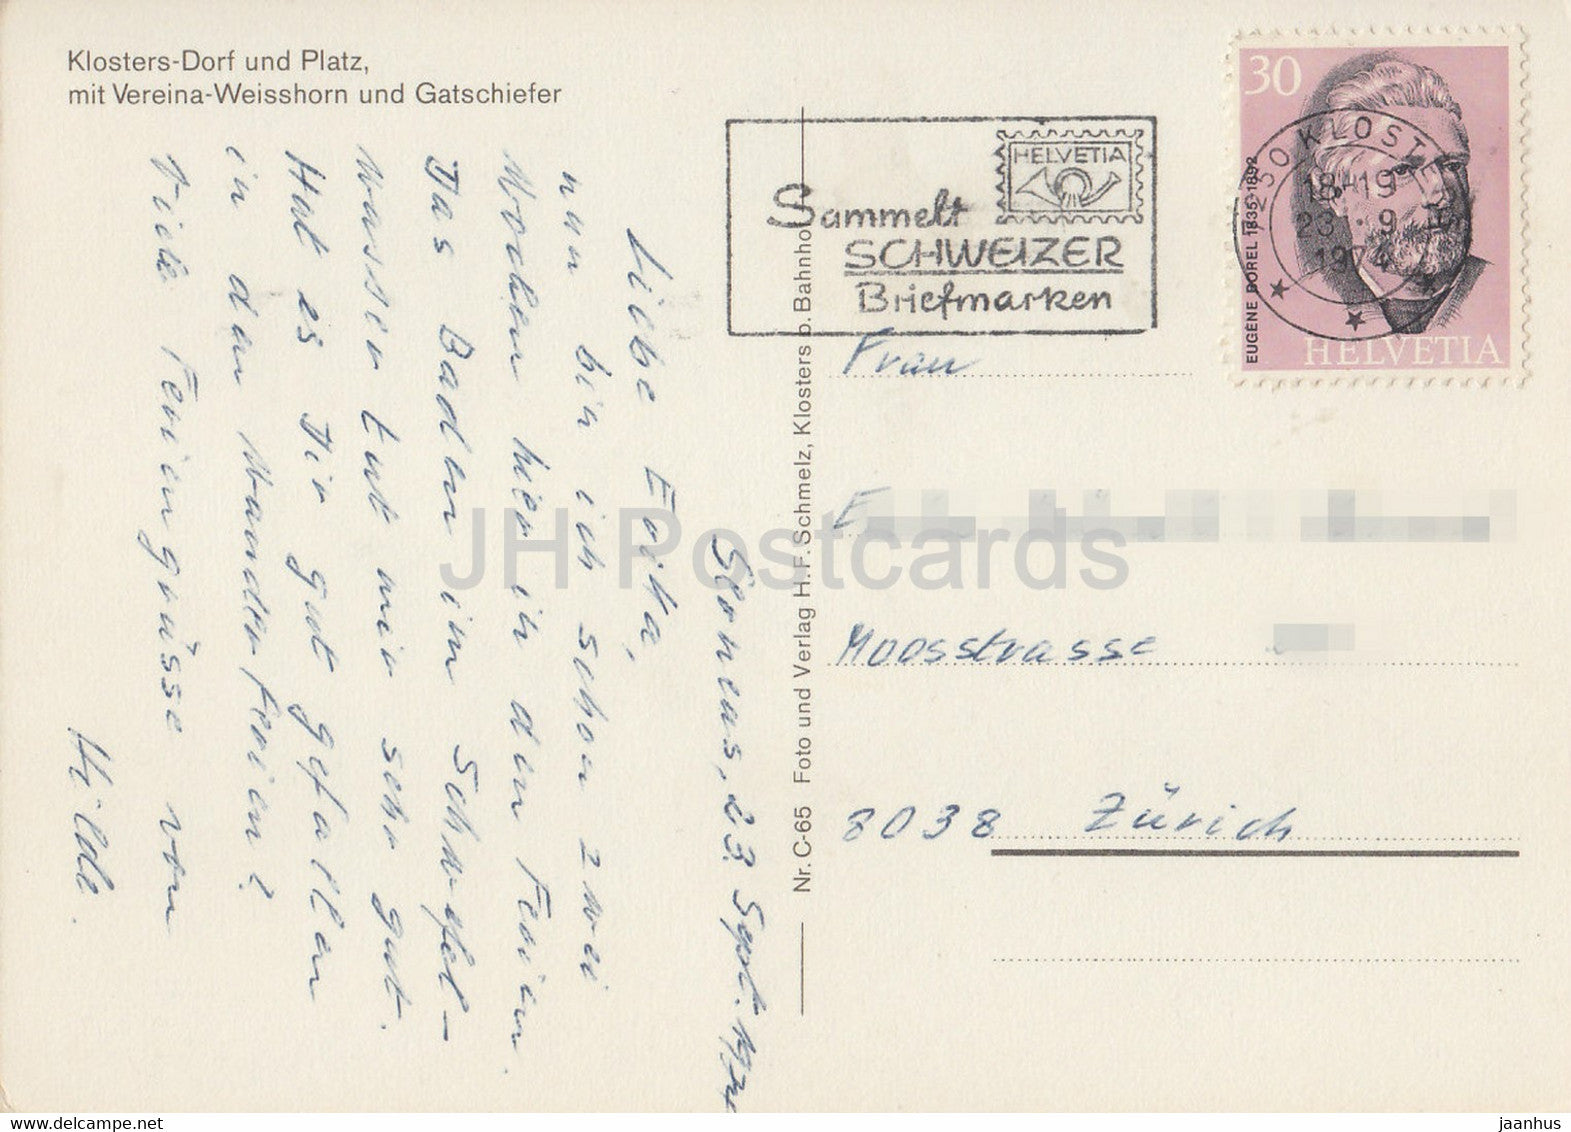 Klosters-Dorf und Platz,
mit Vereina-Weisshorn und Gatschiefer
Serneus, 23. Sept. 1974
Liebe Erika,
nun bin ich schon zwei
Wochen hier in den Ferien.
Das Baden im Schwefel-
wasser tut mir sehr gut.
Hat es Dir gut gefallen
in den Wanderferien?
Viele Feriengrüsse von
Hilde.
Nr. C-65 Foto und Verlag H. F. Schmelz, Klosters b. Bahnhof
HELVETIA
Sammelt
SCHWEIZER
Briefmarken
30
EUGÈNE BOREL 1835-1892
HELVETIA
7250 KLOSTERS
18-19
23.-9.
1974
Frau
E
Moosstrasse
8038 Zürich
JH Postcards
www.delcampe.net
jaanhus